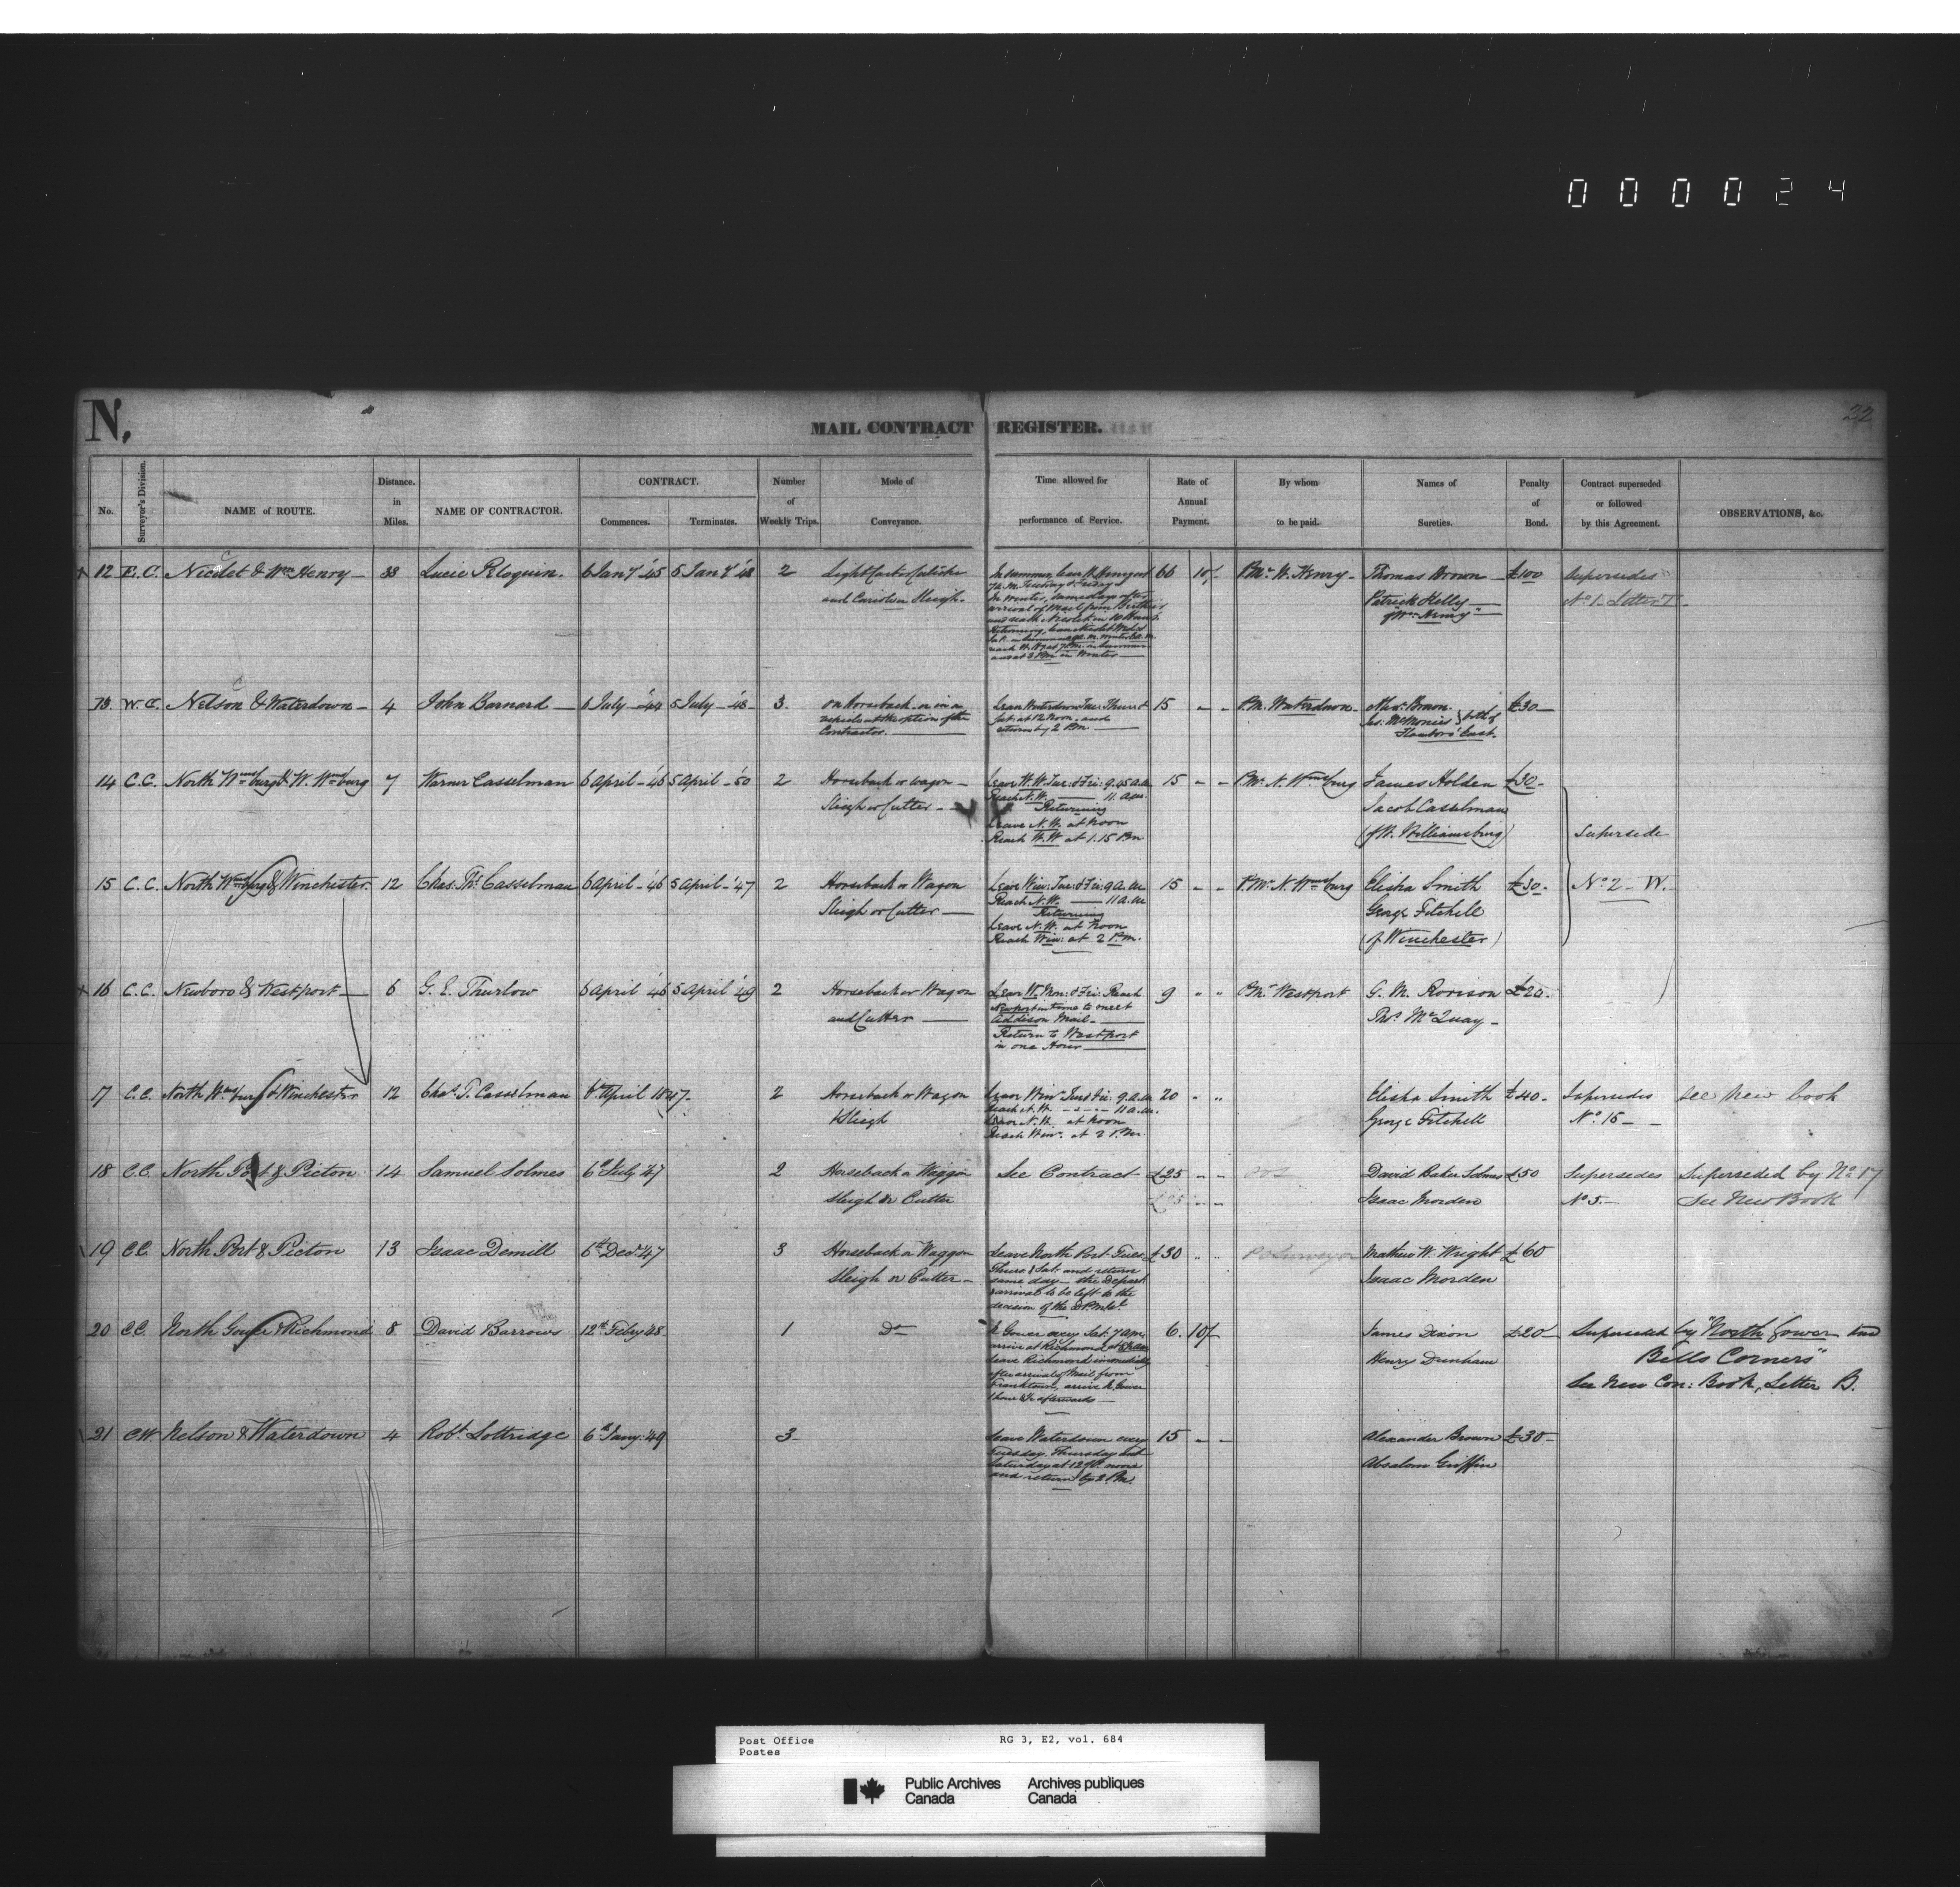 000024
N.
MAIL CONTRACT REGISTER.
22
No. Surveyor's Division. NAME of ROUTE. Distance. in Miles. NAME OF CONTRACTOR. CONTRACT. Commences. Terminates. Number of Weekly Trips. Mode of Conveyance. Time allowed for performance of Service. Rate of Annual Payment. By whom to be paid. Names of Sureties. Penalty of Bond. Contract superseded or followed by this Agreement. OBSERVATIONS, &c.
12 E.C. Nicolet & Wm Henry 33 Lucie Peloquin. 6 Jany '45 5 Jany '48 2
and Cariole or Sleigh.
In Summer leave W. Henry at
7 A.M. Tuesday & Friday
In Winter, same days after
arrival of Mail from Berthier
and reach Nicolet in 10 Hours.
and at 3 P.M. in Winter
66 10/- P.Mr W. Henry Thomas Brown £100 Supersedes
Patrick Kelly No 1 Letter T
of Wm Henry
13 W.C. Nelson & Waterdown 4 John Barnard 6 July '44 5 July '48 3. on Horseback or in a
vehicle at the option of the
Contractor.
Leave Waterdown Tue: Thurs &
Sat. at 12 Noon, and
return by 2 P.M.
15 - - P.M. Waterdown Alexr Brown. £30
Jas. McMonies } both of
Flamboro' East.
14 C.C. North Wmsburg & W. Wmsburg 7 Warner Casselman 6 April '46 5 April '50 2 Horseback or wagon
Sleigh or Cutter
Leave W.W. Tue: & Fri: 9.45 a.m
Reach N.W. 11. a.m.
Returning
Leave N.W. at Noon
Reach W.W at 1.15 P.M
15 - - P.Mr N. Wmsburg James Holden £30
Jacob Casselman
(of W. Williamsburg)
Supersede
15 C.C. North Wmsburg & Winchester 12 Chas. Ths Casselman 6 April '46 5 April '47 2 Horseback or Wagon
Sleigh or Cutter
Leave Win: Tue: & Fri: 9 a.m
Reach N.W. 11 a.m
Returning
Leave N.W. at Noon
Reach Win: at 2 P.M.
15 - - P.Mr N. Wmsburg Elisha Smith £30. No 2 - W.
George Fitchell
(of Winchester)
16 C.C. Newboro & Westport 6 G. E. Thurlow 6 April '46 5 April '49 2 Horseback or Wagon
and Cutter
Leave W. Mon: & Fri: Reach
Newport in time to meet
Addison Mail.
Return to Westport
in one Hour
9 " " P.Mr Westport G. M. Rorison £20.
Thos McQuay
17 C.C. North Wmsburg & Winchester 12 Chas T. Casselman 6th April 1847. 2 Horseback or Wagon
& Sleigh
Leave Winr Tue & Fri: 9 a.m
Reach N.W. - - - 11 a.m.
Leave N.W. at Noon
Reach Winr at 2 P.M.
20 " " Elisha Smith £40. Supersedes See New book
George Fitchell No 15
18 C.C. North Port & Picton 14 Samuel Solmes 6th July '47 2 Horseback or Waggon
Sleigh or Cutter
See Contract £25 - - David Baker Solmes £50 Supersedes Superseded by No 17
Isaac Morden No 5. See New Book
19 C.C. North Port & Picton 13 Isaac Demill 6th Decr '47 3 Horseback or Waggon
Sleigh or Cutter
Leave North Port Tues
Thurs & Sat. and return
same day the Depart
& arrival to be left to the
decision of the
£30 " " PO Surveyor Mathew W. Wright £60
Isaac Morden
20 C.C. North Gower & Richmond 8 David Barrows 12th Feby '48 1 Do
N. Gower every Sat. 7 a.m.
arrive at Richmond at
leave Richmond immediately
after arrival of Mail from
Franktown, arrive N. Gower
afterwards
6. 10/- James Dixon £20 Superseded by "North Gower and
Henry Dunham Bells Corners"
See New Con: Book, Letter B.
21 C.W. Nelson & Waterdown 4 Robt Lottridge 6th Jany '49 3
Leave Waterdown every
Tuesday, Thursday and
Saturday at 12 noon
and return by 2 P.M.
15 - - Alexander Brown £30
Absalom Griffin
Post Office RG 3, E2, vol. 684
Postes
Public Archives Archives publiques
Canada Canada